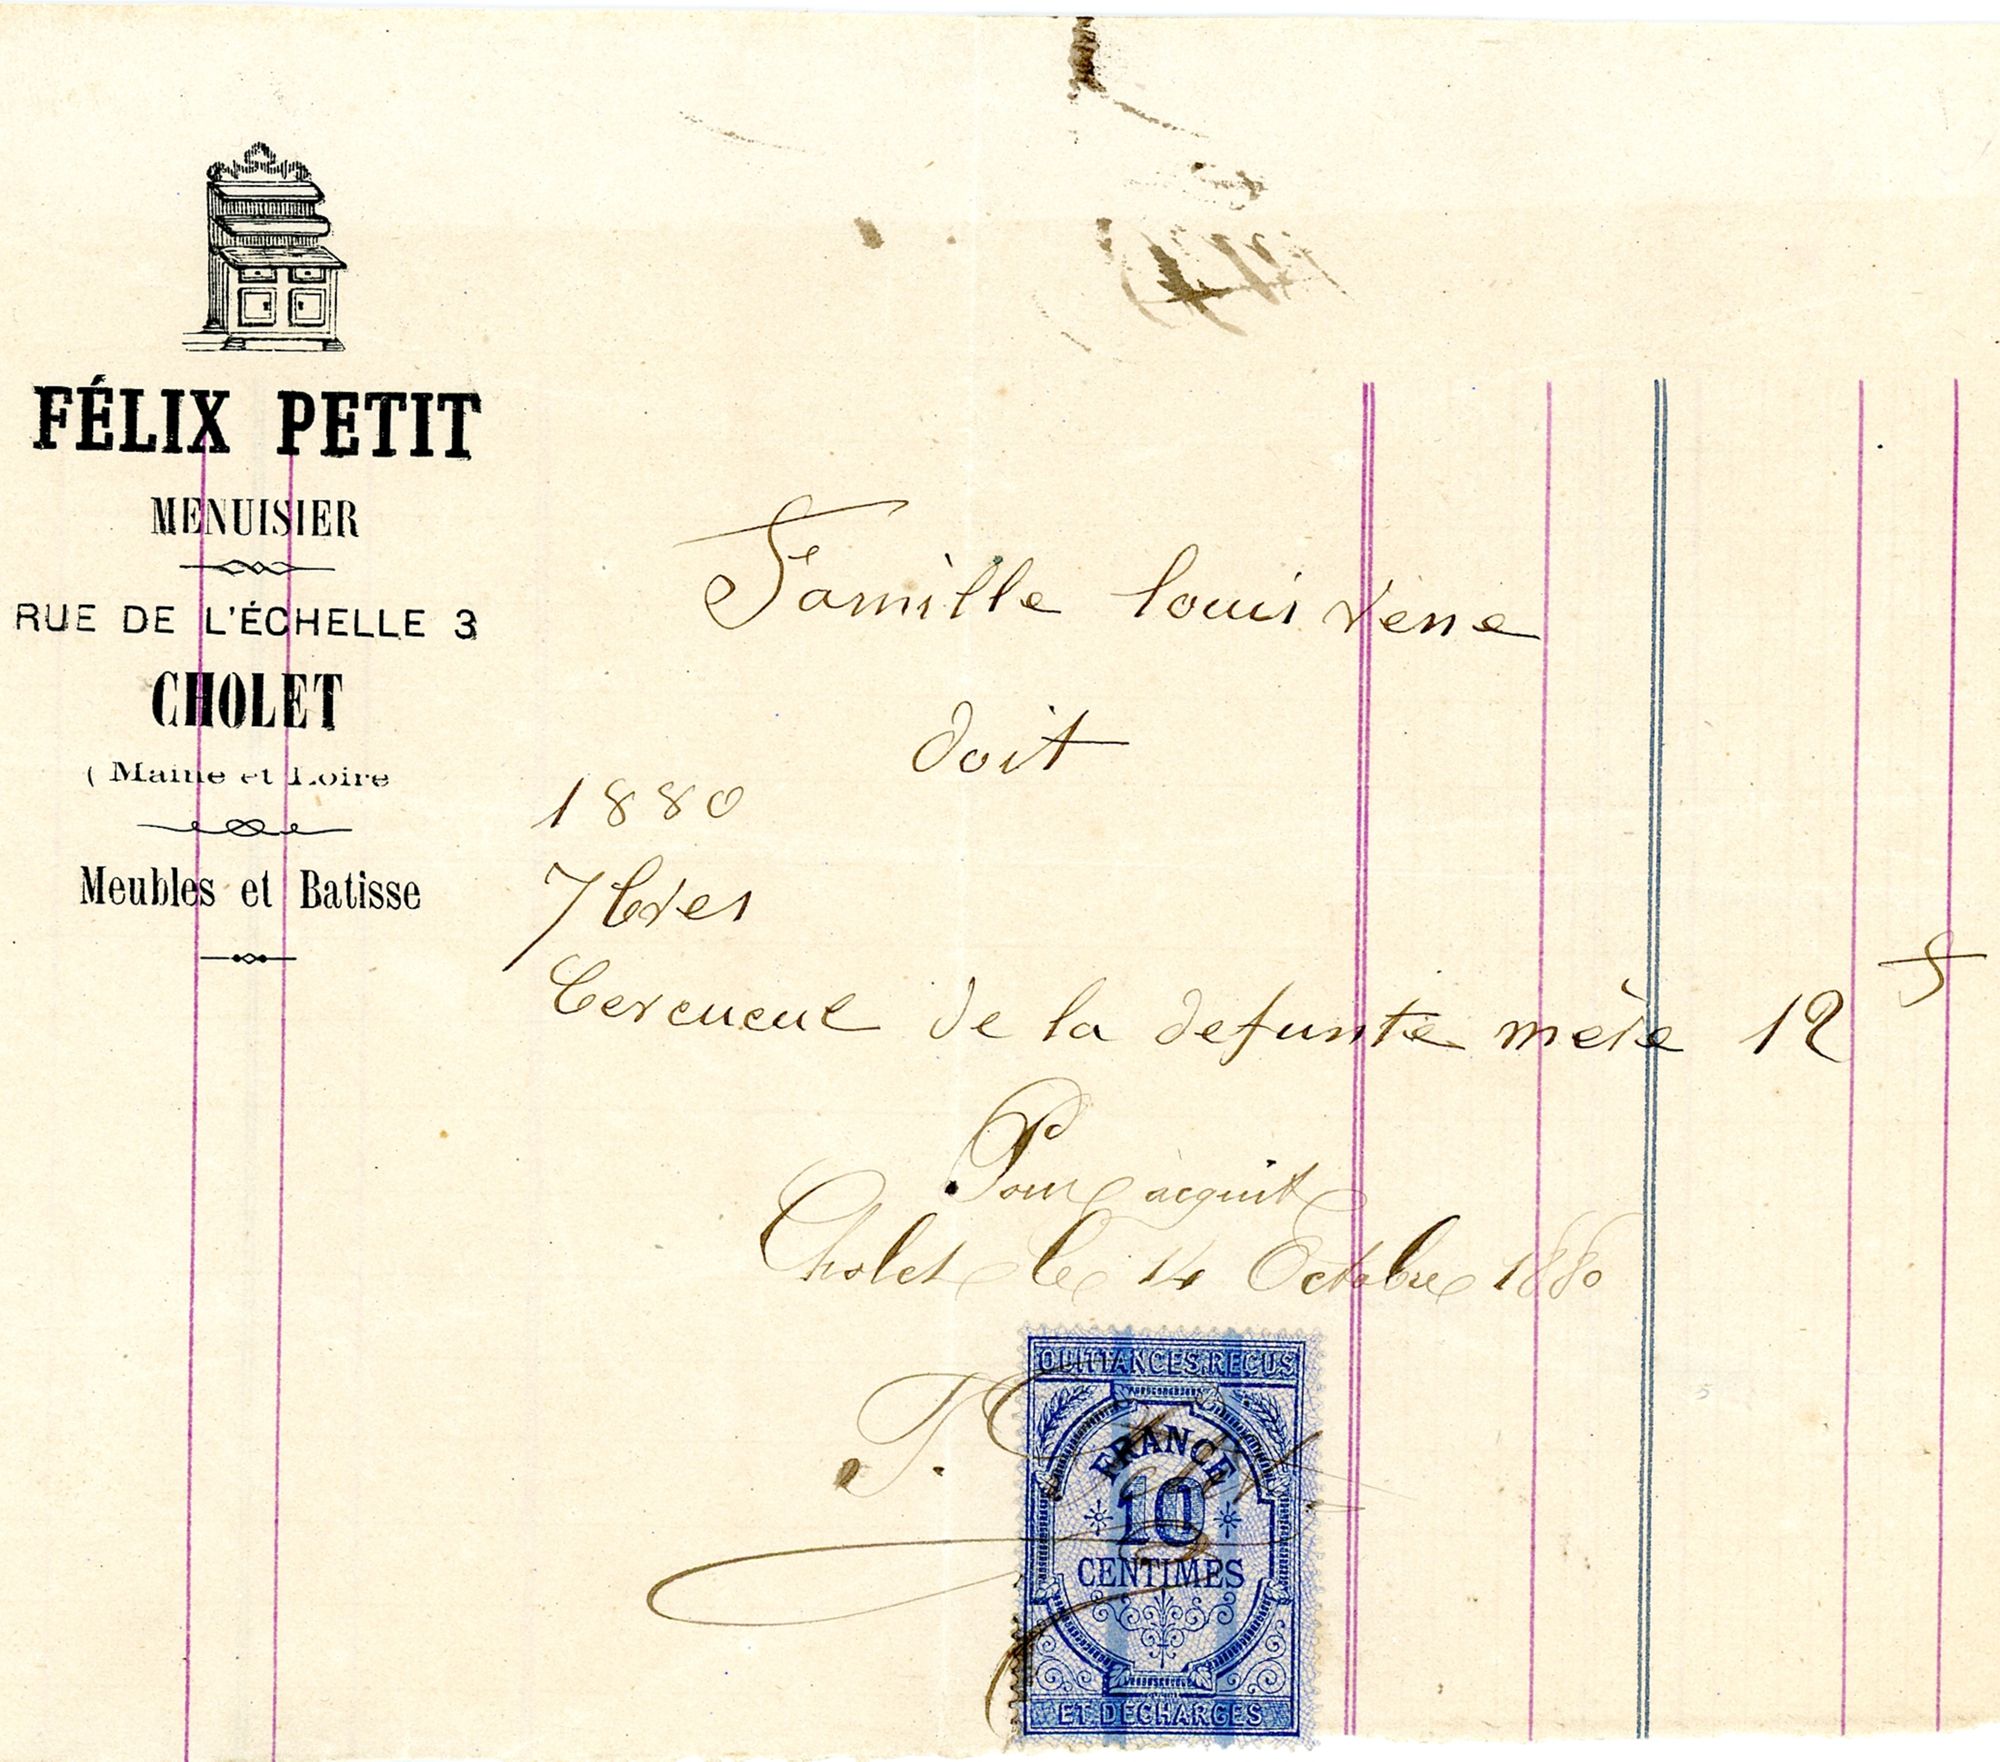 FÉLIX PETIT
MENUISIER
RUE DE L'ÉCHELLE 3
CHOLET
( Maine et Loire
Meubles et Batisse
Famille louis rene
doit
1880
7bres
Cercueul de la defunte mère 12 f
Pour acquit
Cholet le 14 Octobre 1880
QUITTANCES, REÇUS
FRANCE
10
CENTIMES
ET DÉCHARGES